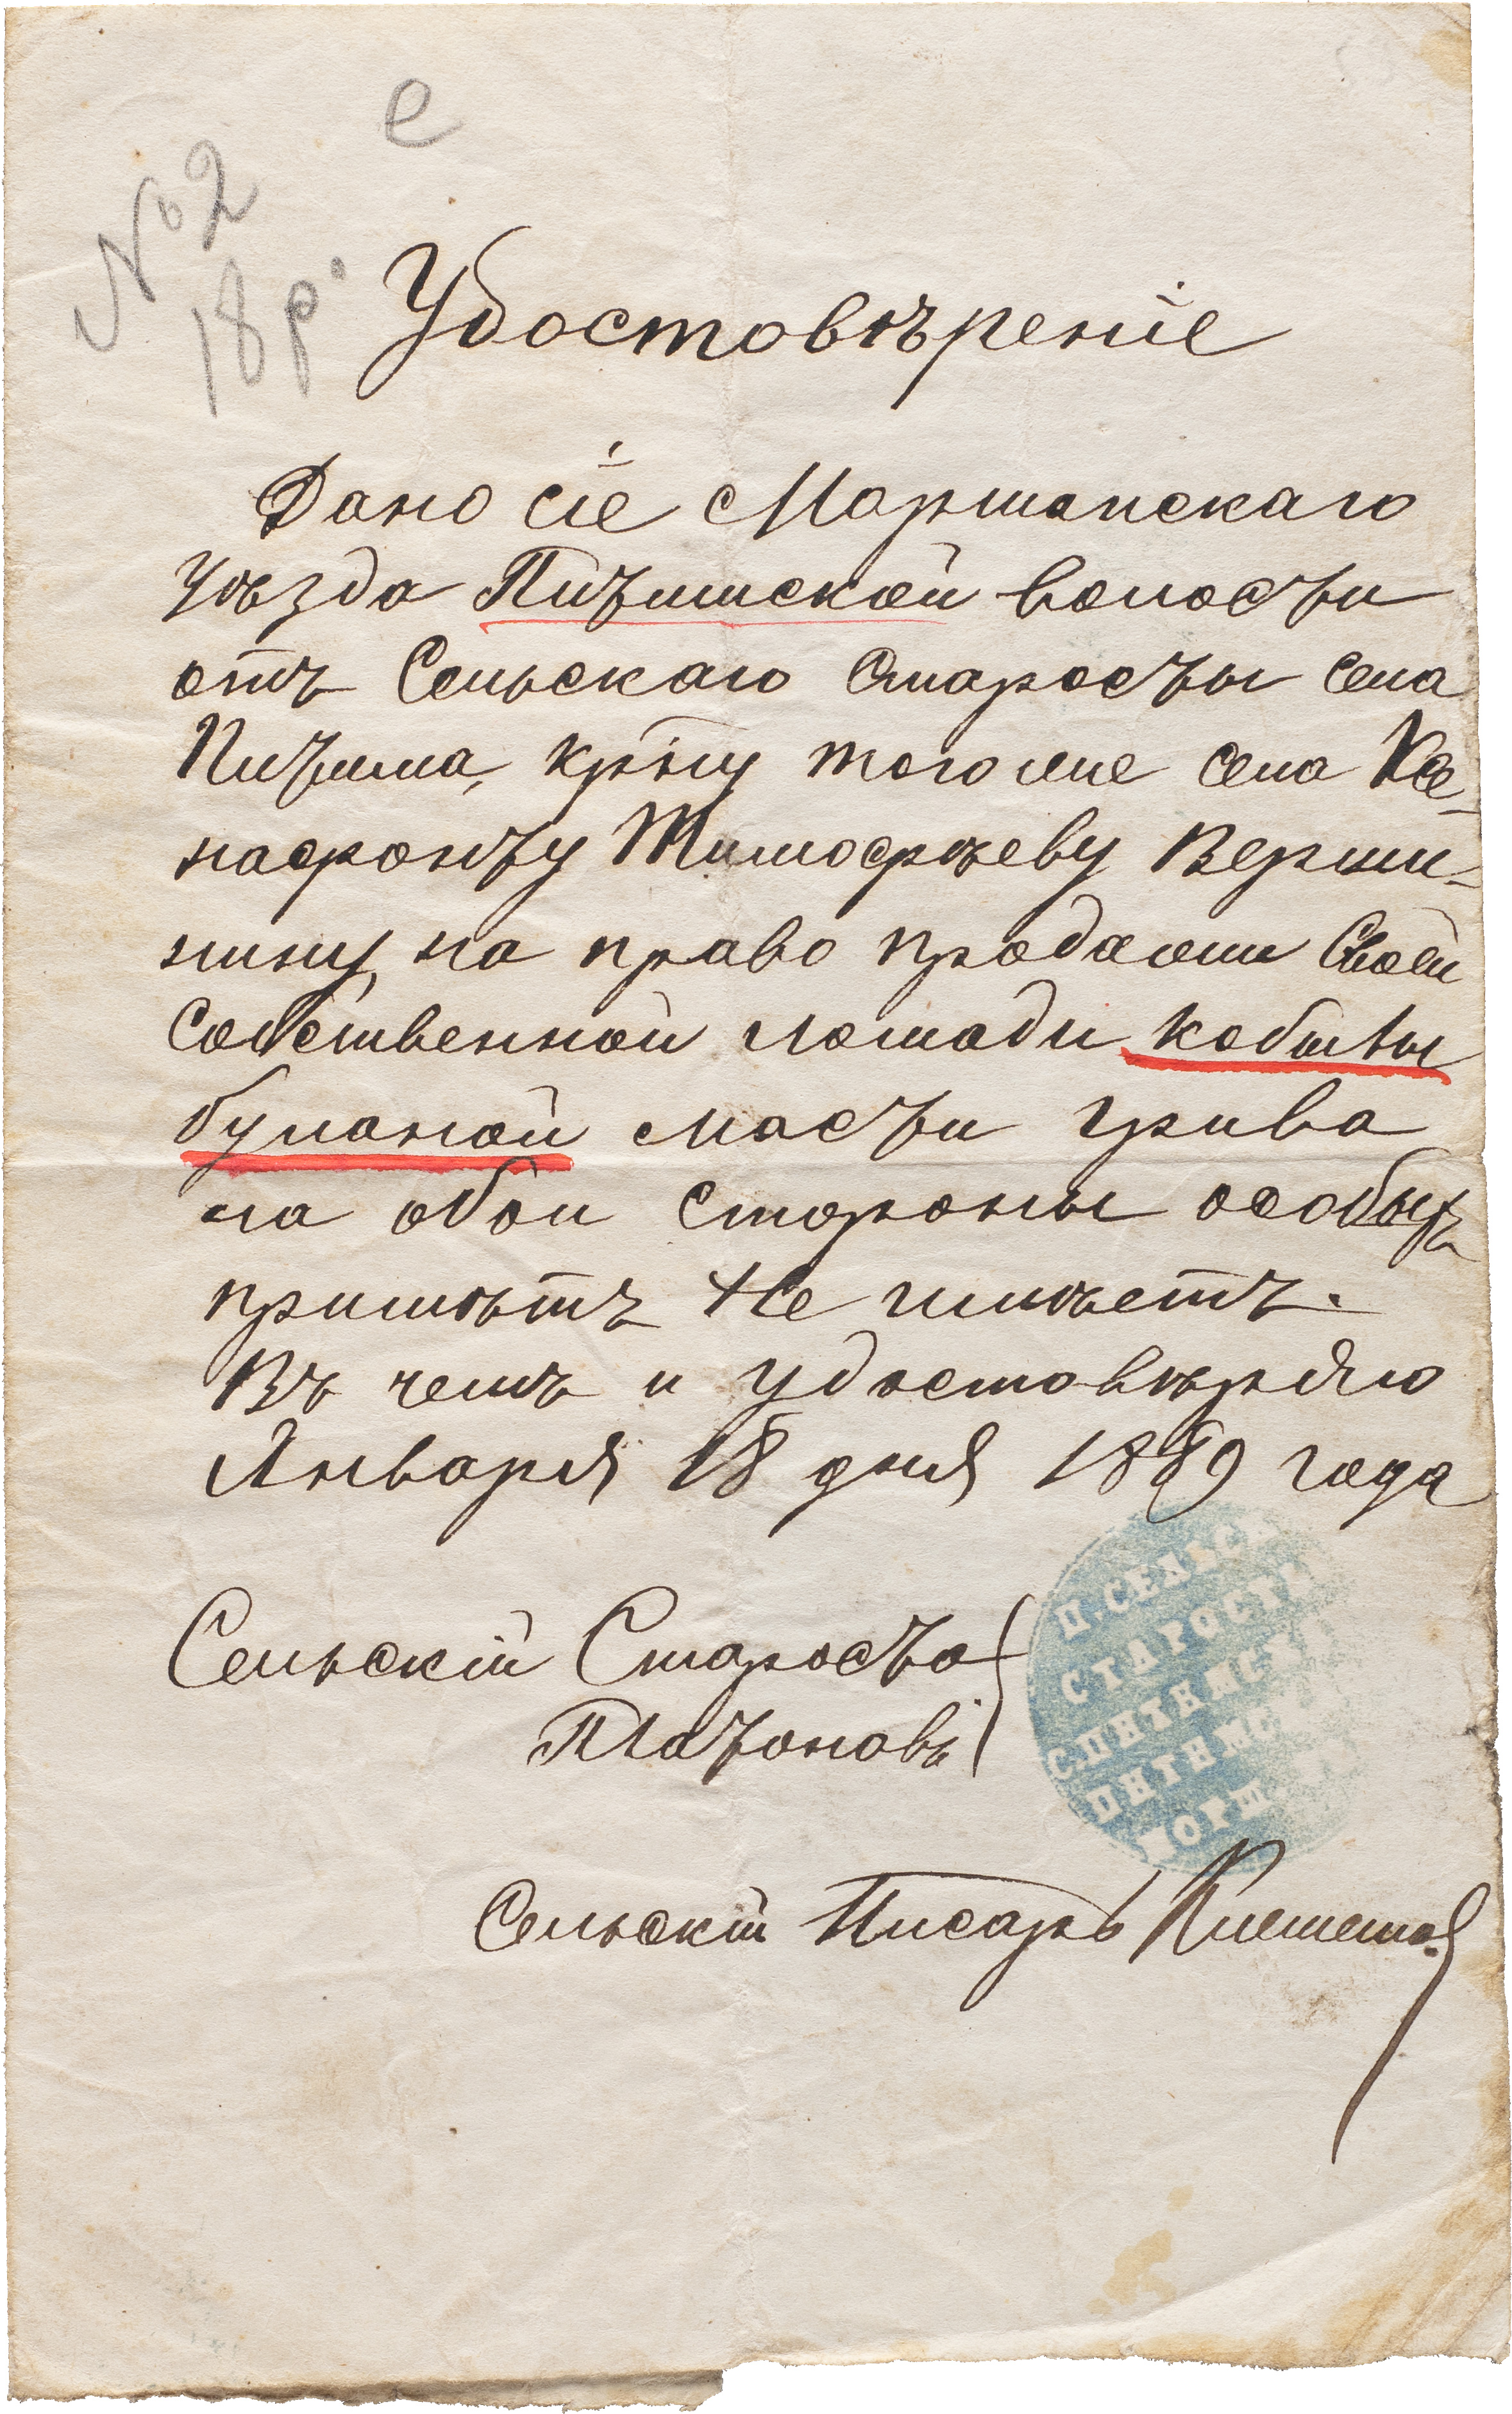 е
№ 2
18 р.
Удостовѣреніе
Дано сіе Моршанскаго
Уѣзда Питимской волости
отъ Сельскаго Старосты села
Питима, кр‑ну того же села Ксе-
нафонту Тимофѣеву Верши-
нину, на право продажи Своей
Собственной лошади кобылы
буланой масти грива
на обои стороны особыхъ
примѣтъ Не имѣетъ.
Въ чемъ и удостовѣряю
Января 18 дня 1889 года
Сельскій Староста
Платоновъ
П. СЕЛЬСК
СТАРОСТ
С. ПИТИМСК
ПИТИМС
МОРШ
Сельскій Писарь